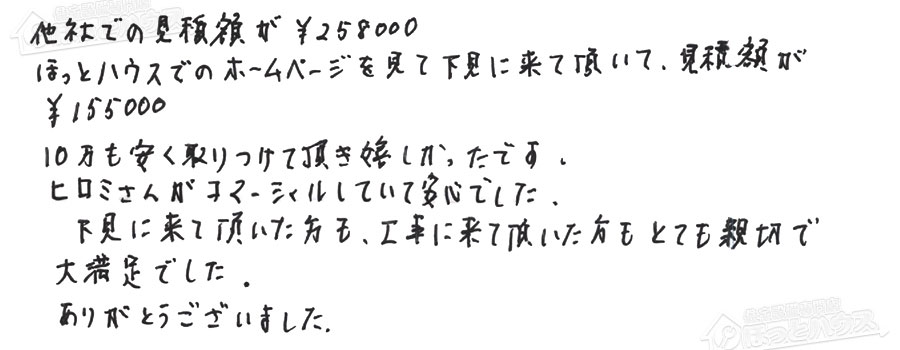 他社での見積額が ¥258000
ほっとハウスでのホームページを見て下見に来て頂いて、見積額が
¥155000
10万も安く取りつけて頂き嬉しかったです。
ヒロミさんがコマーシャルしていて安心でした。
下見に来て頂いた方も、工事に来て頂いた方もとても親切で
大満足でした。
ありがとうございました。
ほっとハウス